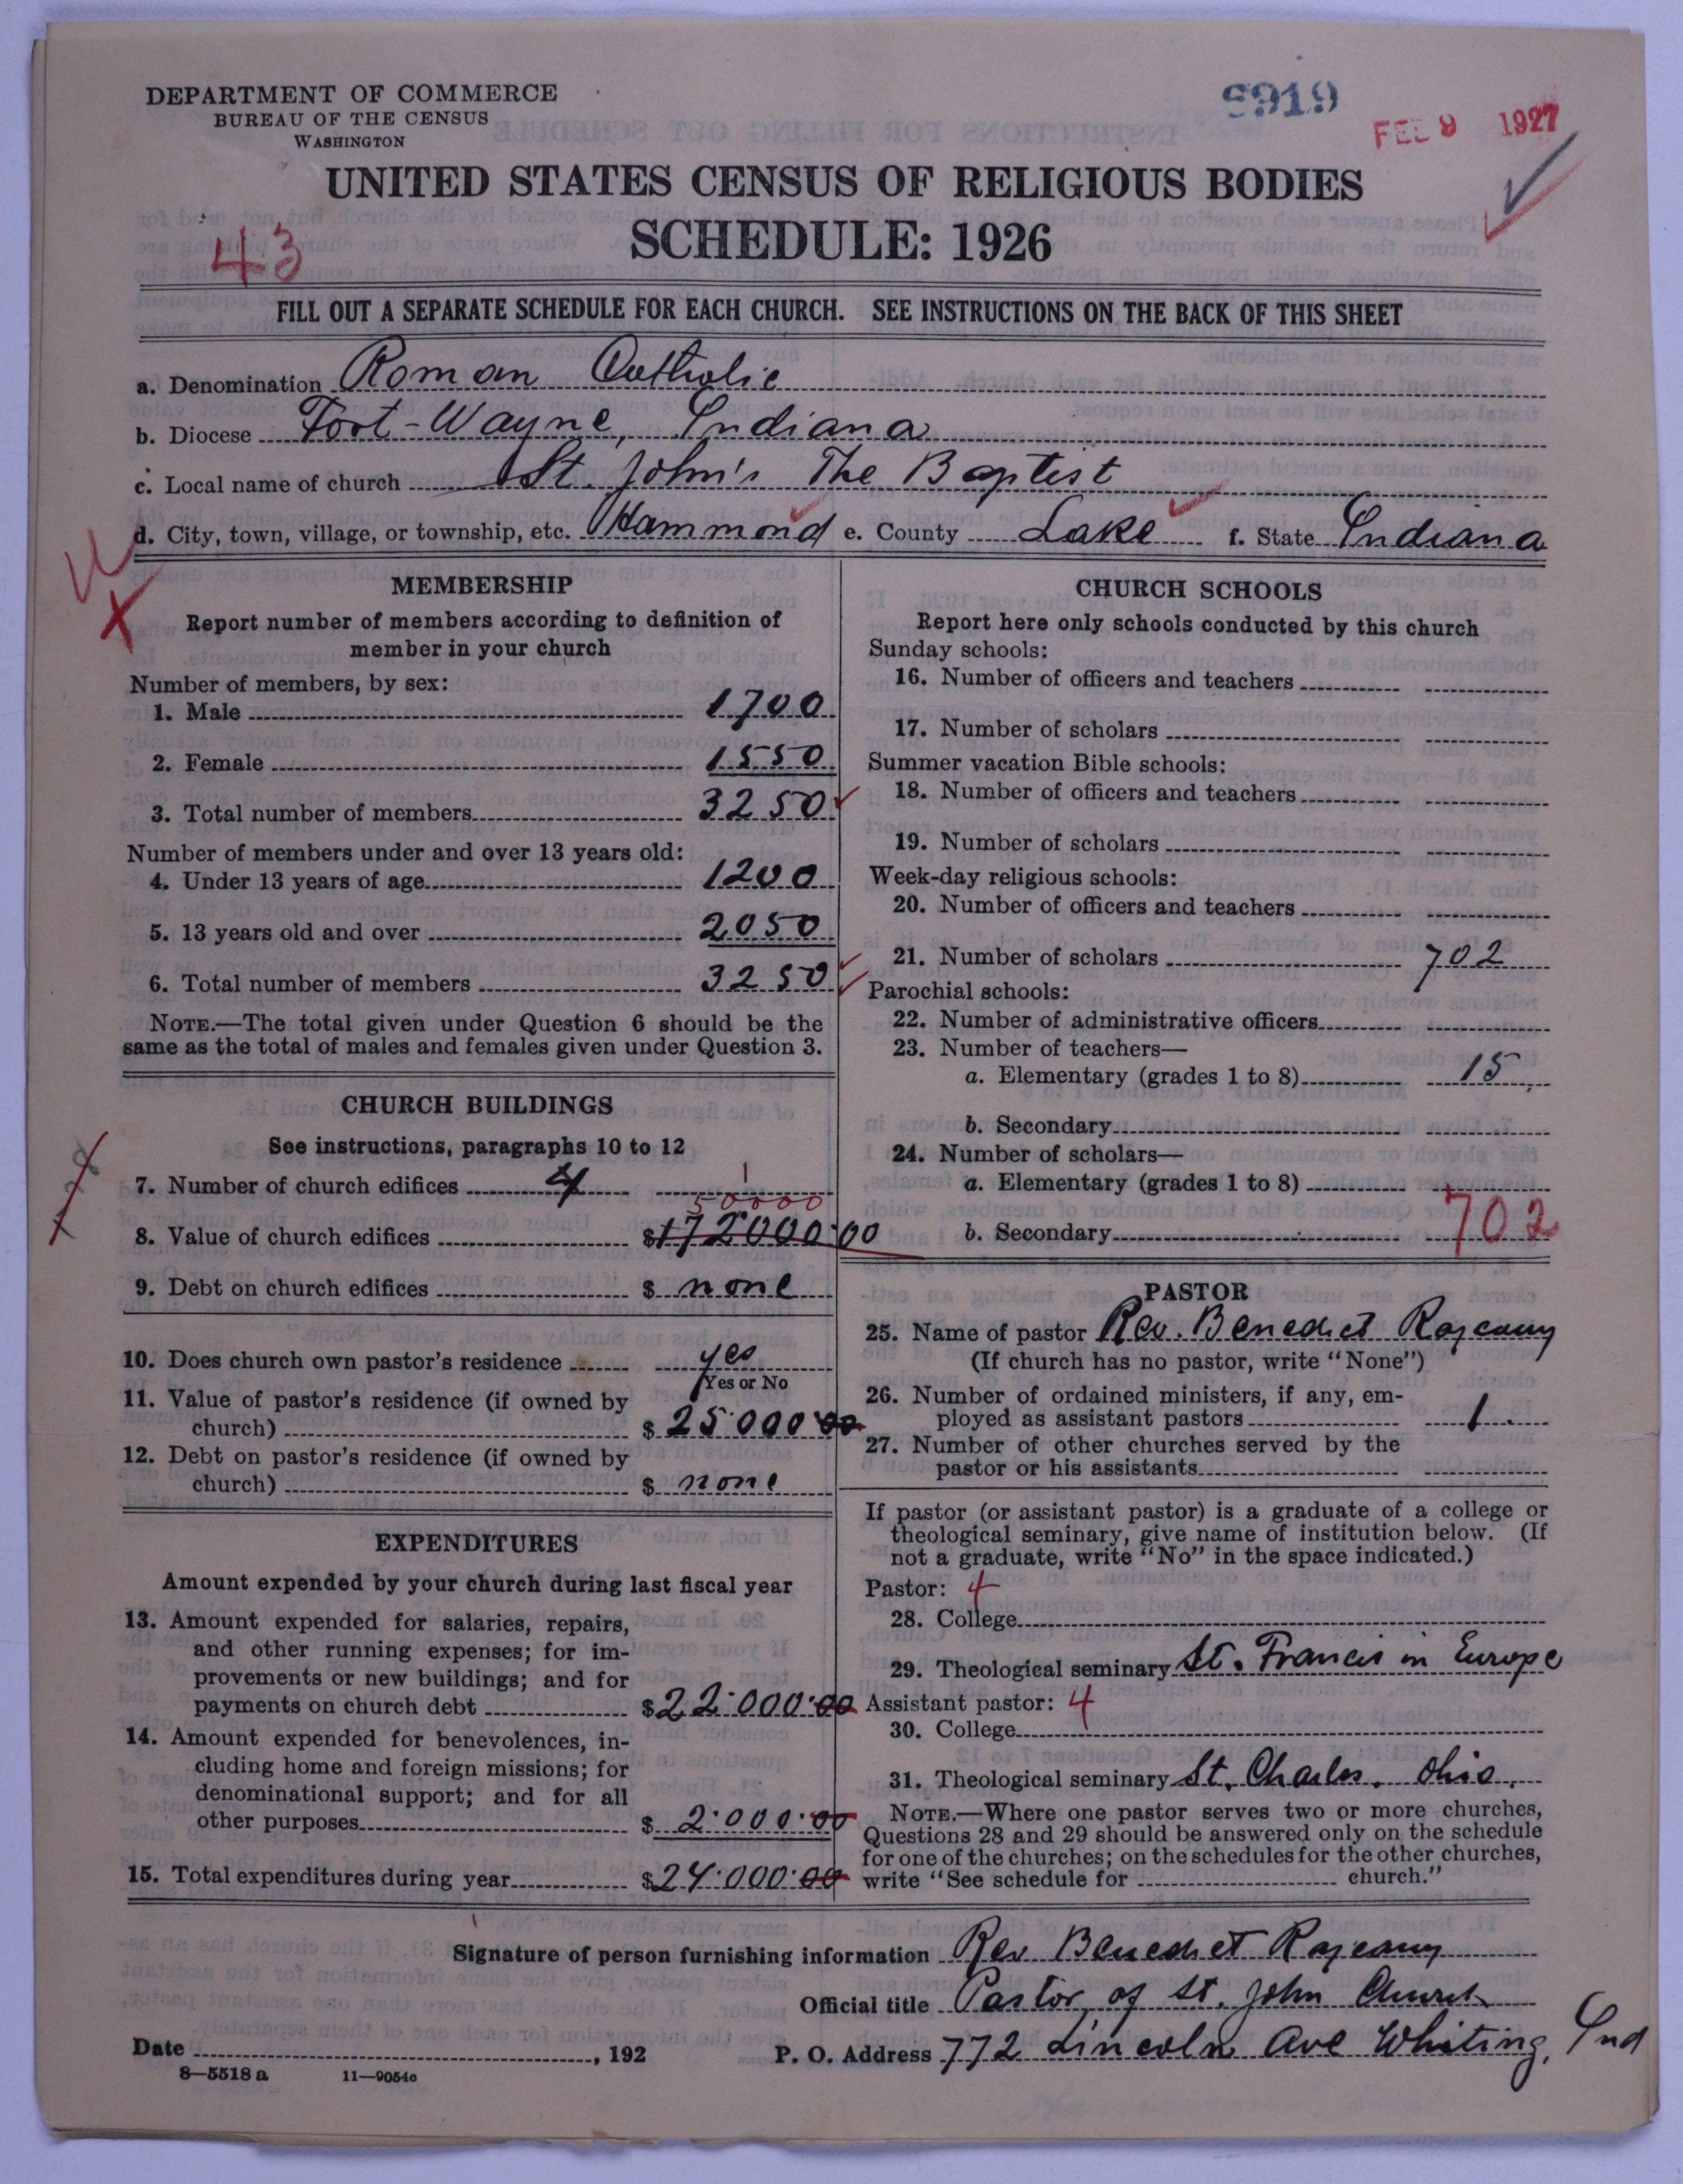 DEPARTMENT OF COMMERCE
BUREAU OF THE CENSUS
WASHINGTON
5919
FEB 9 1927
UNITED STATES CENSUS OF RELIGIOUS BODIES
SCHEDULE: 1926
43
FILL OUT A SEPARATE SCHEDULE FOR EACH CHURCH. SEE INSTRUCTIONS ON THE BACK OF THIS SHEET
a. Denomination Roman Catholic
b. Diocese Fort-Wayne, Indiana
c. Local name of church St. John's The Baptist
d. City, town, village, or township, etc. Hammond e. County Lake f. State Indiana
MEMBERSHIP
Report number of members according to definition of
member in your church
Number of members, by sex:
1. Male 1700
2. Female 1550
3. Total number of members 3250
Number of members under and over 13 years old:
4. Under 13 years of age 1200
5. 13 years old and over 2050
6. Total number of members 3250
NOTE.—The total given under Question 6 should be the
same as the total of males and females given under Question 3.
CHURCH BUILDINGS
See instructions, paragraphs 10 to 12
7. Number of church edifices 4 1
50000
8. Value of church edifices $172000.00
9. Debt on church edifices $ none
10. Does church own pastor's residence yes
Yes or No
11. Value of pastor's residence (if owned by
church) $ 25000.00
12. Debt on pastor's residence (if owned by
church) $ none
EXPENDITURES
Amount expended by your church during last fiscal year
13. Amount expended for salaries, repairs,
and other running expenses; for im-
provements or new buildings; and for
payments on church debt $22.000.00
14. Amount expended for benevolences, in-
cluding home and foreign missions; for
denominational support; and for all
other purposes $ 2.000.00
15. Total expenditures during year $24.000.00
CHURCH SCHOOLS
Report here only schools conducted by this church
Sunday schools:
16. Number of officers and teachers
17. Number of scholars
Summer vacation Bible schools:
18. Number of officers and teachers
19. Number of scholars
Week-day religious schools:
20. Number of officers and teachers
21. Number of scholars 702
Parochial schools:
22. Number of administrative officers
23. Number of teachers—
a. Elementary (grades 1 to 8) 15
b. Secondary
24. Number of scholars—
a. Elementary (grades 1 to 8)
702
b. Secondary
PASTOR
25. Name of pastor Rev. Benedict Rajcany
(If church has no pastor, write "None")
26. Number of ordained ministers, if any, em-
ployed as assistant pastors 1
27. Number of other churches served by the
pastor or his assistants
If pastor (or assistant pastor) is a graduate of a college or
theological seminary, give name of institution below. (If
not a graduate, write "No" in the space indicated.)
Pastor: 4
28. College
29. Theological seminary St. Francis in Europe
Assistant pastor: 4
30. College
31. Theological seminary St. Charles. Ohio.
NOTE.—Where one pastor serves two or more churches,
Questions 28 and 29 should be answered only on the schedule
for one of the churches; on the schedules for the other churches,
write "See schedule for church."
Signature of person furnishing information Rev Benedict Rajcany
Official title Pastor of St. John Church
Date , 192
P. O. Address 772 Lincoln Ave Whiting, Ind
8—5518 a 11—9054c